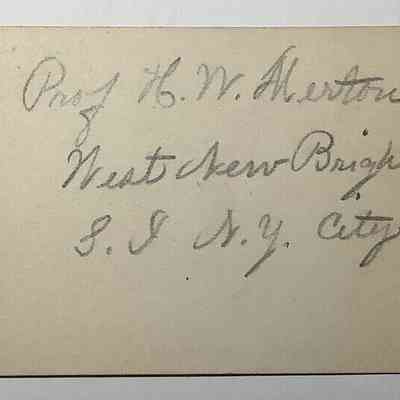 Prof H. W. Merton
West New Brigh
S. I N.Y. City